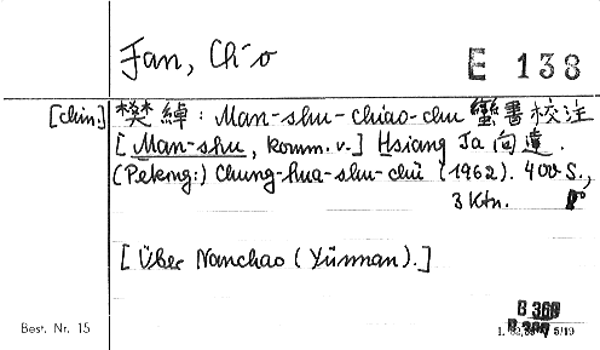 Fan, Ch'o
E 138
[chin.] 樊綽: Man-shu-chiao-chu 蠻書校注
[Man-shu, komm. v.] Hsiang Ta 向達.
(Peking:) Chung-hua-shu-chü (1962). 400 S.,
3 Ktn. 8°
[Über Nanchao (Yünnan).]
B 360
Best. Nr. 15
5/19